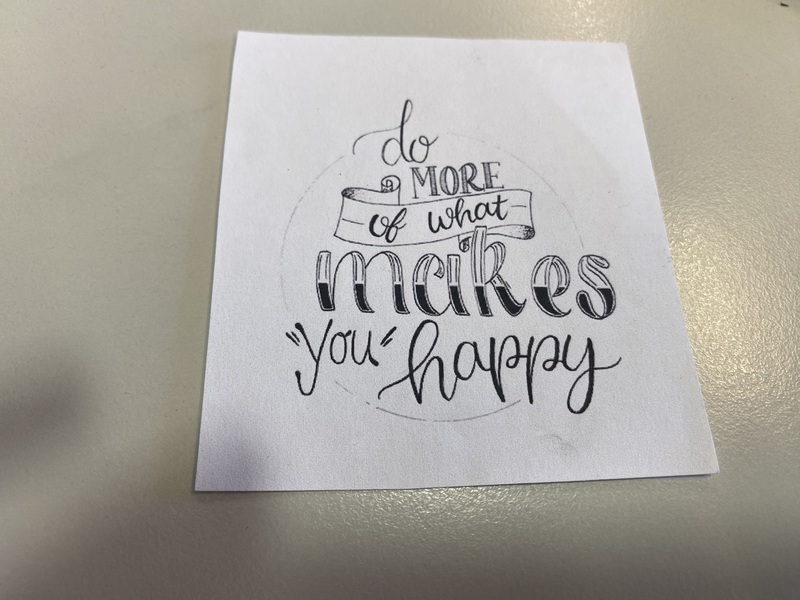 do
MORE
of what
makes
"you" happy